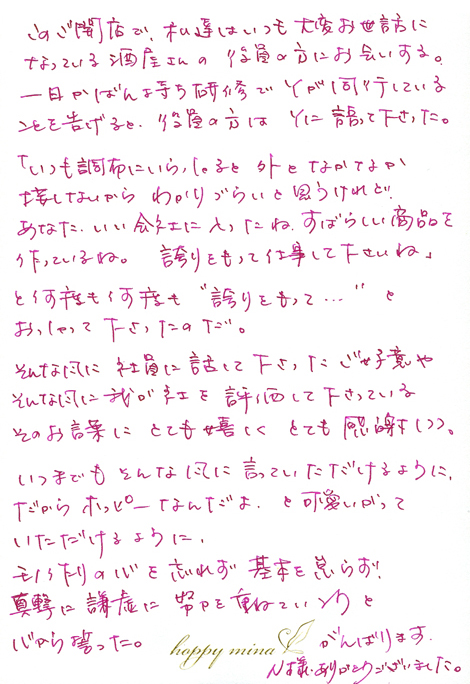 このご開店で、私達はいつも大変お世話に
なっている酒屋さんの 役員の方にお会いする。
一日かばん持ち研修で Yが同行している
ことを告げると、役員の方は Yに語って下さった。
「いつも調布にいらっしゃると 外となかなか
接しないから わかりづらいと思うけれど、
あなた、いい会社に入ったね。すばらしい商品を
作っているね。 誇りをもって仕事して下さいね」
と何度も何度も “誇りをもって…” と
おっしゃって下さったのだ。
そんな風に 社員に話して下さった ご好意や
そんな風に我が社を 評価して下さっている
そのお言葉に とても嬉しく とても感謝しつつ。
いつまでも そんな風に言っていただけるように、
だから ホッピーなんだよ、と可愛いがって
いただけるように、
モノづくりの心を忘れず 基本を怠らず、
真摯に 謙虚に 努力を重ねていこうと
心から誓った。 hoppy mina がんばります。
N様、ありがとうございました。